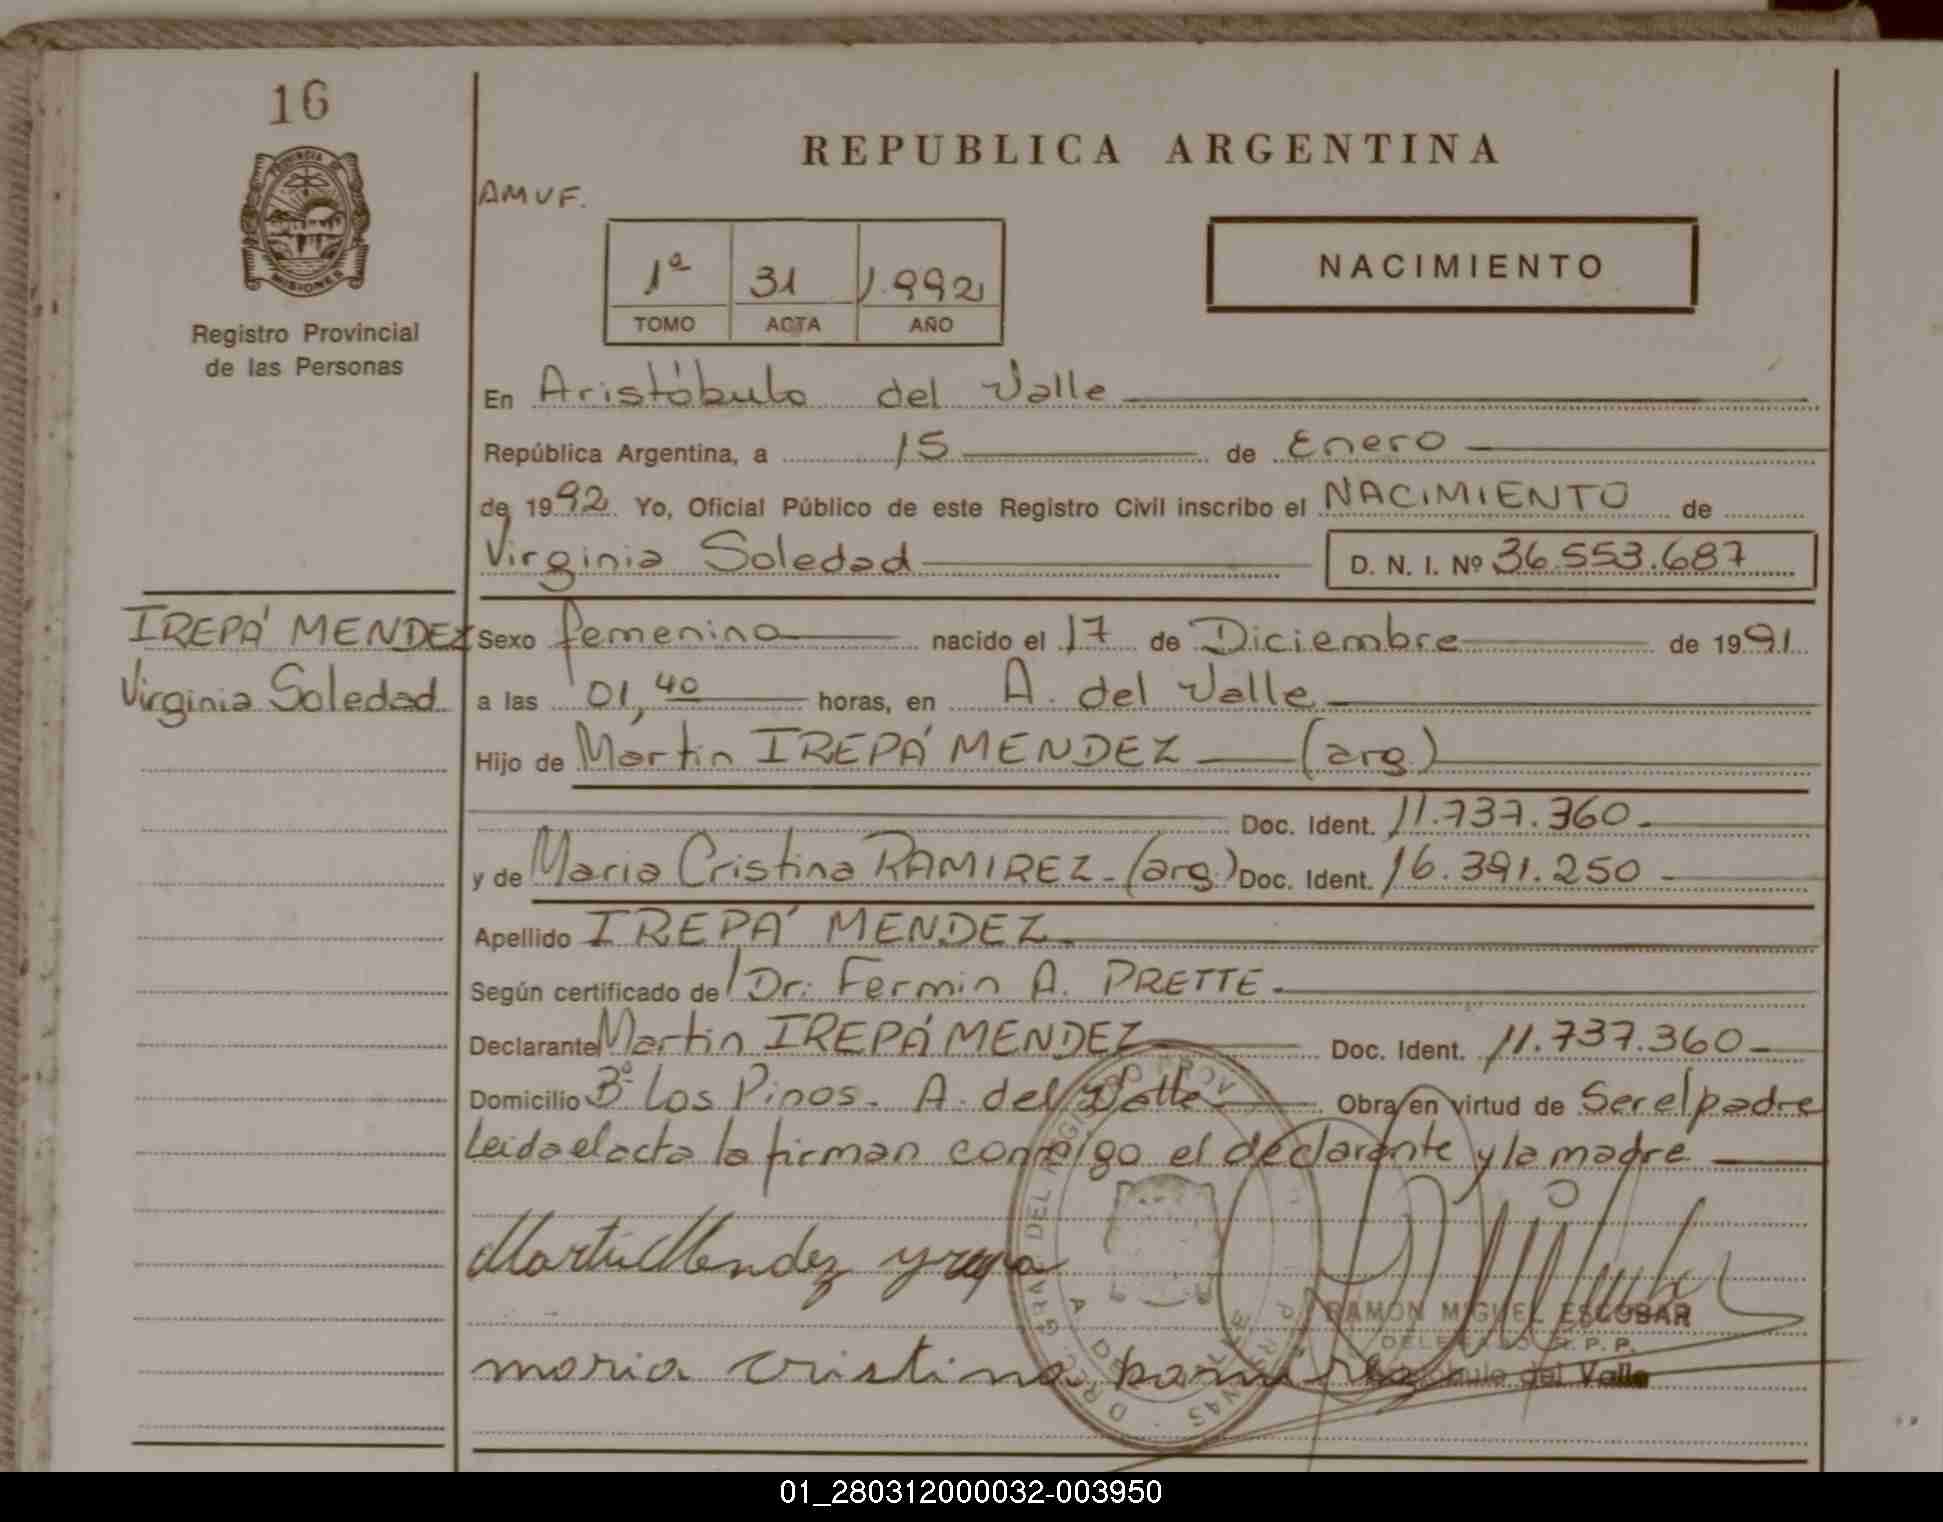 16
PROVINCIA DE
MISIONES
Registro Provincial
de las Personas
REPUBLICA ARGENTINA
AMVF.
1ª 31 1.992
TOMO ACTA AÑO
NACIMIENTO
En Aristóbulo del Valle
República Argentina, a 15 de Enero
de 1992. Yo, Oficial Público de este Registro Civil inscribo el NACIMIENTO de
Virginia Soledad D. N. I. Nº 36.553.687
IREPÁ MENDEZ
Virginia Soledad
Sexo femenino nacido el 17 de Diciembre de 1991.
a las 01,40 horas, en A. del Valle
Hijo de Martin IREPÁ MENDEZ (arg.)
Doc. Ident. 11.737.360.
y de Maria Cristina RAMIREZ - (arg.) Doc. Ident. 16.391.250
Apellido IREPÁ MENDEZ
Según certificado de Dr. Fermin A. PRETTE.
Declarante Martin IREPÁ MENDEZ Doc. Ident. 11.737.360
Domicilio Bº Los Pinos. A. del Valle Obra en virtud de Ser el padre
Leida el acta la firman conmigo el declarante y la madre
Martin Mendez yrepa
RAMON MIGUEL ESCOBAR
DELEGADO R.P.P.
Aristóbulo del Valle
maria cristina Ramirez
01_280312000032-003950